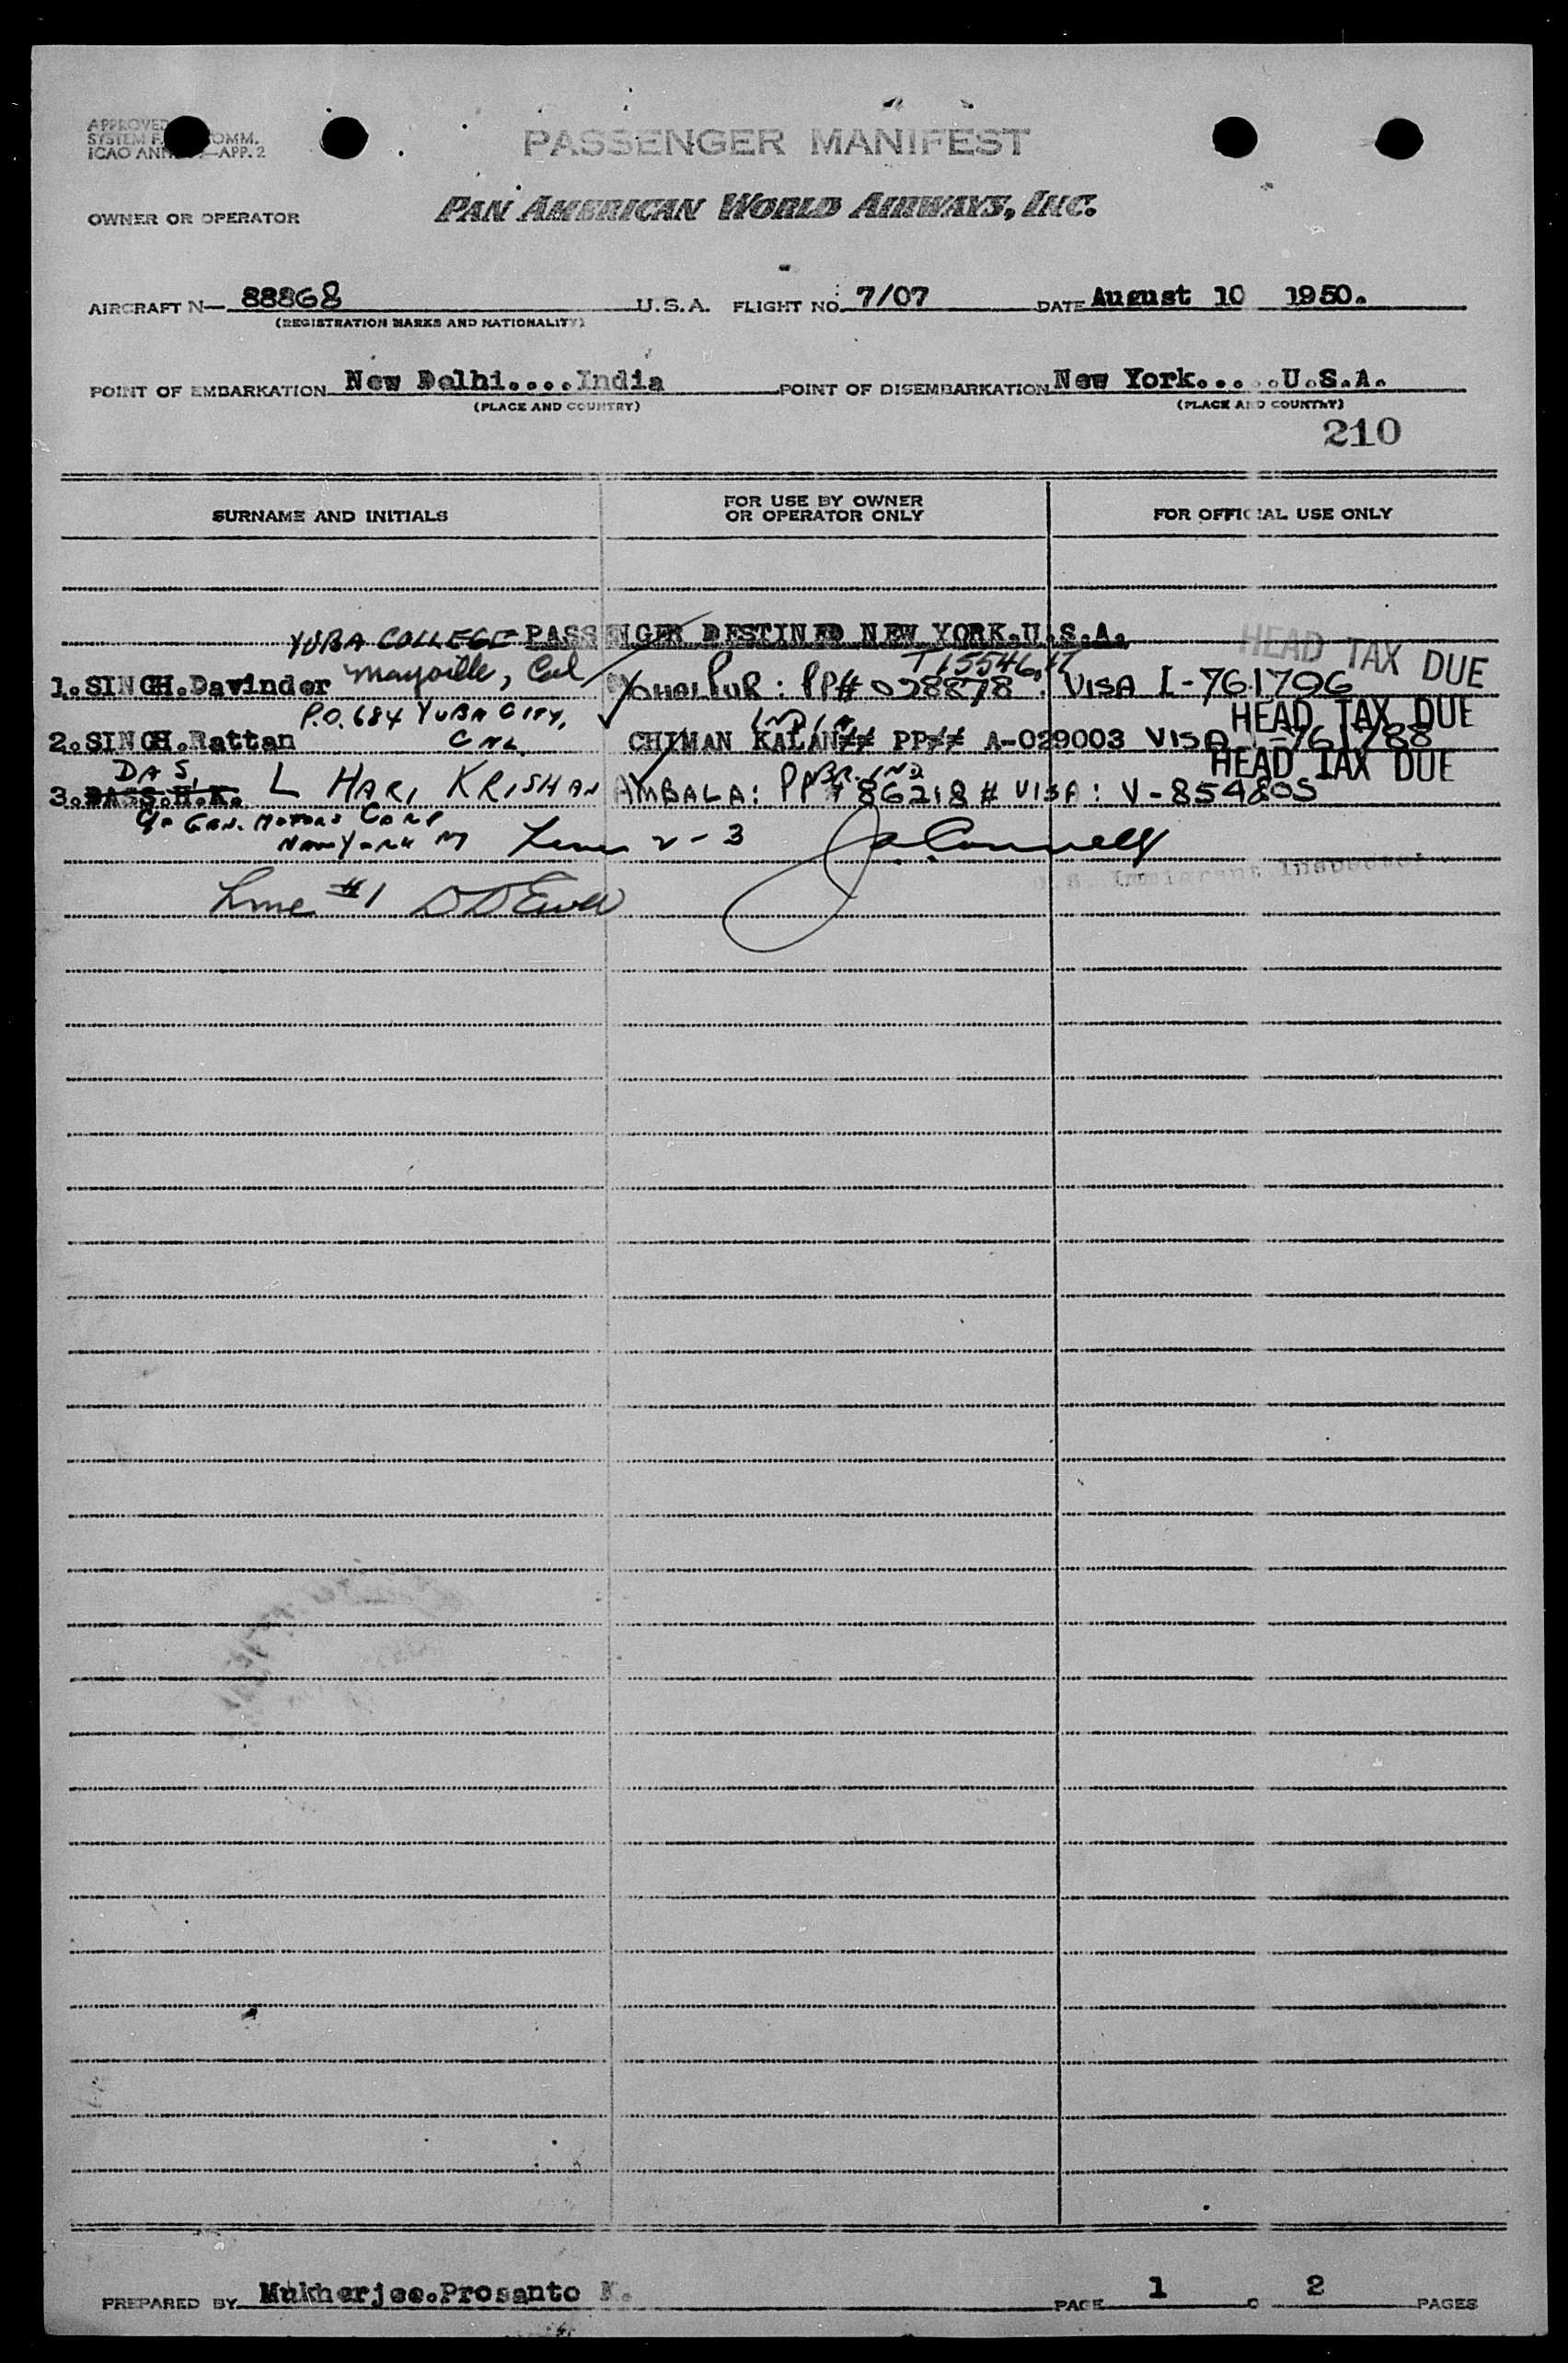 APPROVED
SYSTEM F. COMM.
ICAO ANN —APP. 2
PASSENGER MANIFEST
OWNER OR OPERATOR PAN AMERICAN WORLD AIRWAYS, INC.
AIRCRAFT N— 88868 U.S.A. FLIGHT NO. 7/07 DATE August 10 1950.
(REGISTRATION MARKS AND NATIONALITY)
POINT OF EMBARKATION New Delhi....India POINT OF DISEMBARKATION New York.....U.S.A.
(PLACE AND COUNTRY) (PLACE AND COUNTRY)
210
SURNAME AND INITIALS FOR USE BY OWNER OR OPERATOR ONLY FOR OFFICIAL USE ONLY
YUBA COLLEGE PASSENGER DESTINED NEW YORK.U.S.A.
HEAD TAX DUE
1.SINGH.Davinder Marysville, Cal PP# 028878 VISA I-761706
P.O. 684 YUBA CITY, INDIA HEAD TAX DUE
2.SINGH.Rattan CAL CHIMAN KALAN## PP## A-029003 VISA I-761788
DAS, BR. IND HEAD TAX DUE
3.DASS.H.K. L HARI KRISHAN AMBALA: PP# 86218 # VISA: V-854805
c/o GEN. MOTORS CORP
New York NY Lines 2-3
U.S. Immigrant Inspector
Line #1
PREPARED BY Mukherjee.Prosanto K. PAGE 1 O 2 PAGES